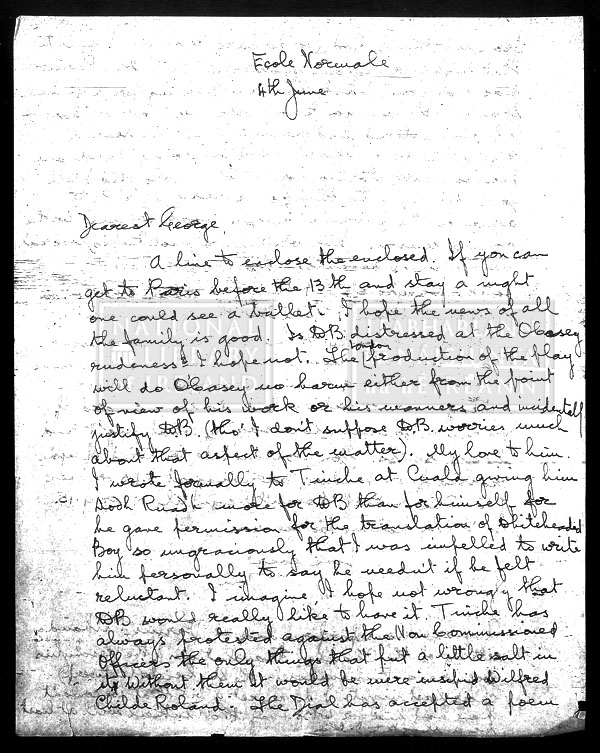 Ecole Normale
4th June
Dearest George,
A line to enclose the enclosed. If you can
get to Paris before the 13th and stay a night
one could see a ballet. I hope the news of all
the family is good. Is DB distressed at the OCasey
rudeness? I hope not. The London production of the play
will do OCasey no harm either from the point
of view of his work or his manners and incidentally
justify DB (tho' I don't suppose DB worries much
about that aspect of the matter). My love to him.
I wrote formally to Tinche at Cuala giving him
Aodh Ruadh more for DB than for himself for
he gave permission for the translation of Whiteheaded
Boy so ungraciously that I was impelled to write
him personally to say he needn't if he felt
reluctant. I imagine I hope not wrongly that
DB would really like to have it. Tinche has
always protested against the Non Commissioned
Officers the only things that put a little salt in
it. Without them it would be mere insipid Wilfred
Childe Roland. The Dial has accepted a poem
NATIONAL
LIBRARY
OF IRELAND
LEABHARLANN
NÁISIÚNTA
NA hÉIREANN